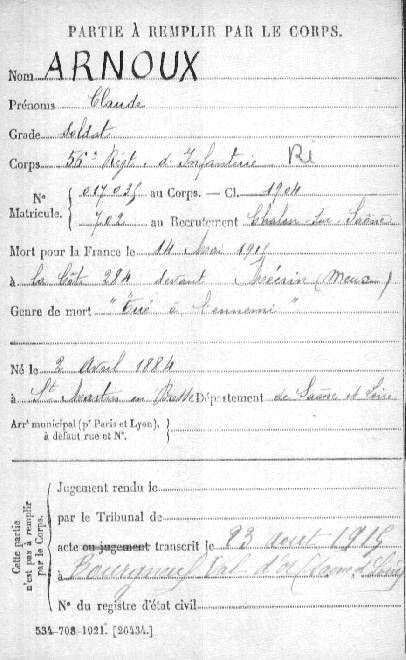 PARTIE À REMPLIR PAR LE CORPS.
Nom ARNOUX
Prénoms Claude
Grade soldat
Corps 56e Régt. d'Infanterie RI
Nº Matricule. 017035 au Corps. — Cl. 1904
702 au Recrutement Chalon-sur-Saône
Mort pour la France le 14 Mai 1915
à la Côte 284 devant Mécrin (Meuse)
Genre de mort "Tué à l'ennemi"
Né le 2 Avril 1884
à St Martin en Département de Saône et Loire
Arrt municipal (pr Paris et Lyon), à défaut rue et Nº.
Cette partie n'est pas à remplir par le Corps.
Jugement rendu le
par le Tribunal de
acte ou jugement transcrit le 23 août 1915
à (Saône et Loire)
Nº du registre d'état civil
534-708-1921. [26434.]